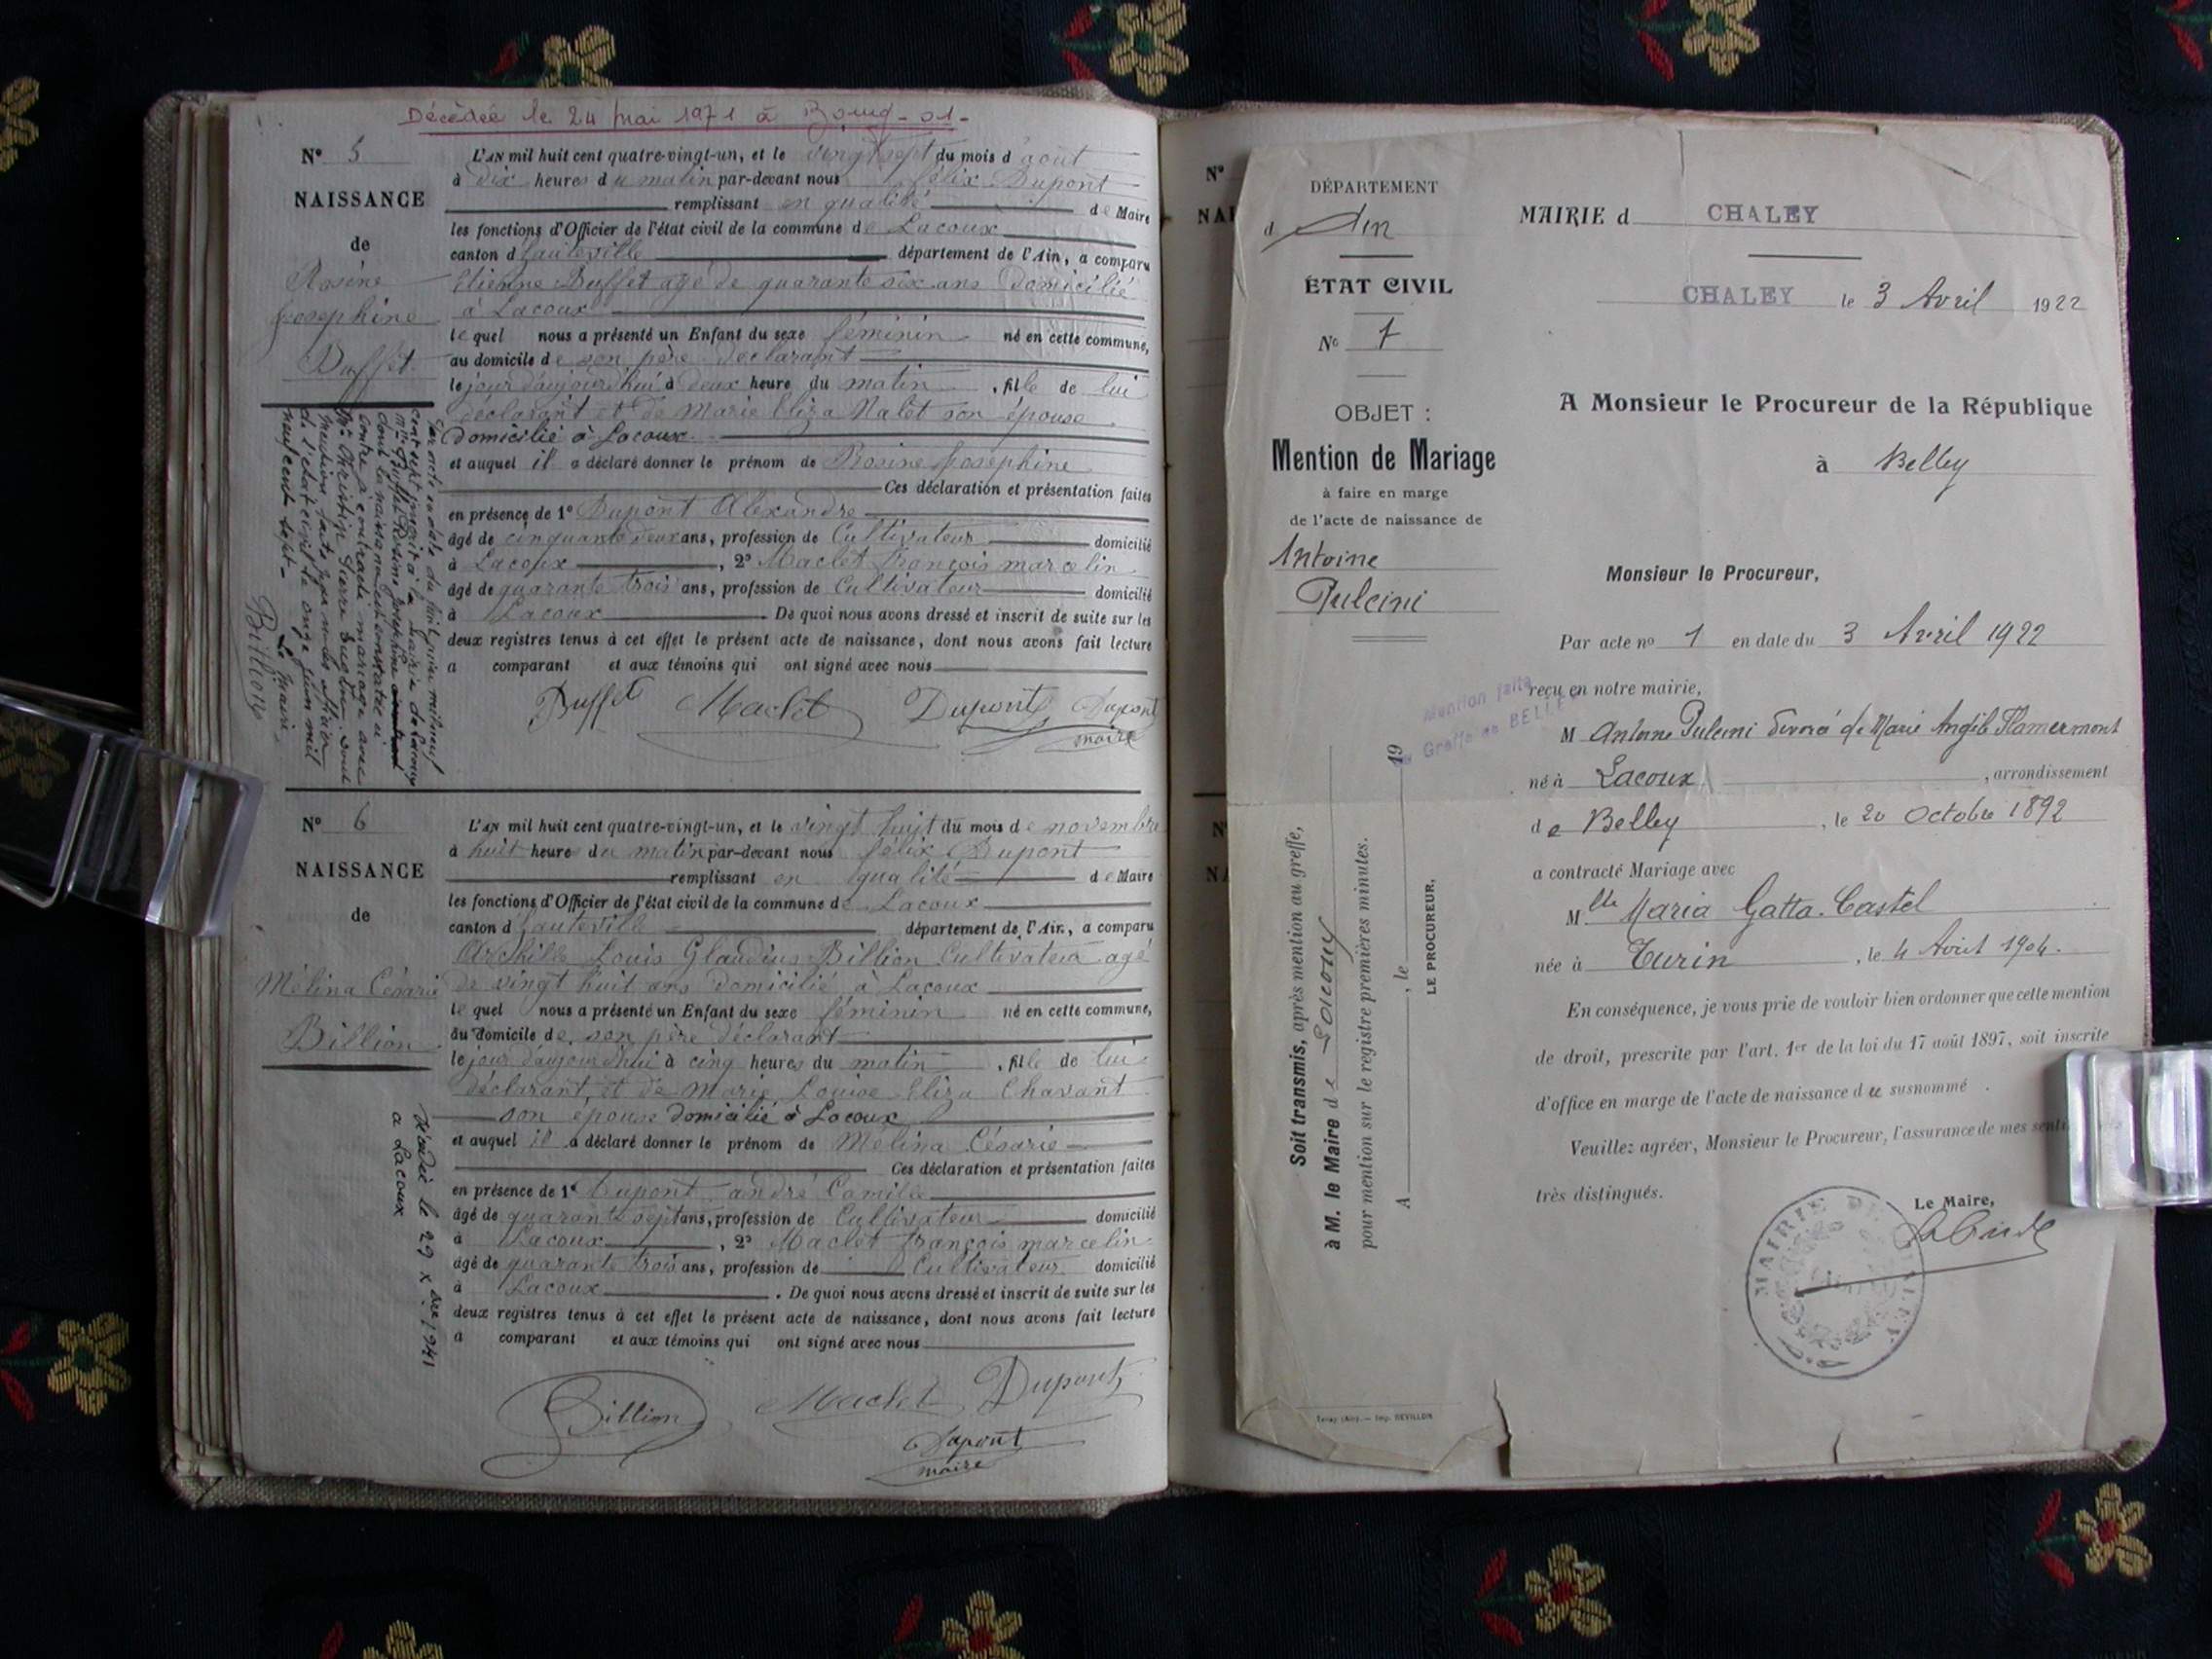 Décédée le 24 mai 1971 à Bourg - 01 -
N° 5
NAISSANCE
de
Rosine
Josephine
Buffet
L'AN mil huit cent quatre-vingt-un, et le vingt sept du mois d'août
à dix heures du matin par-devant nous Félix Dupont
remplissant en qualité de Maire
les fonctions d'Officier de l'état civil de la commune de Lacoux
canton d'hauteville département de l'Ain, a comparu
Etienne Buffet agé de quarante six ans Domicilié
à Lacoux
lequel nous a présenté un Enfant du sexe féminin né en cette commune,
au domicile de son père déclarant
le jour d'aujourd'hui à deux heure du matin, fille de lui
déclarant et de Marie Eliza Nalet son épouse
domicilié à Lacoux
et auquel il a déclaré donner le prénom de Rosine Josephine
Ces déclaration et présentation faites
en présence de 1° Dupont Alexandre
âgé de cinquante deux ans, profession de Cultivateur domicilié
à Lacoux, 2° Maclet François marcelin
âgé de quarante trois ans, profession de Cultivateur domicilié
à Lacoux. De quoi nous avons dressé et inscrit de suite sur les
deux registres tenus à cet effet le présent acte de naissance, dont nous avons fait lecture
a comparant et aux témoins qui ont signé avec nous
Buffet Maclet Dupont Dupont
maire
Par acte en date du huit juin mil neuf
cent sept inscrit à la mairie de Lacoux
Mlle Buffet Rosine Josephine
dont la naissance est constatée ci
contre a contracté mariage avec
Mr Christin Pierre Eugène, dont
mention faite par nous officier
de l'état civil le onze juin mil
neuf cent sept.
Le Maire
Billion
N° 6
NAISSANCE
de
Mélina Césarie
Billion
L'AN mil huit cent quatre-vingt-un, et le vingt huit du mois de novembre
à huit heure du matin par-devant nous Félix Dupont
remplissant en qualité de Maire
les fonctions d'Officier de l'état civil de la commune de Lacoux
canton d'hauteville département de l'Ain, a comparu
Archille Louis Glaudius Billion Cultivateur agé
de vingt huit ans domicilié à Lacoux
lequel nous a présenté un Enfant du sexe féminin né en cette commune,
au domicile de son père déclarant
le jour d'aujourd'hui à cinq heures du matin, fille de lui
déclarant, et de Marie Louise Eliza Chavant
son épouse domicilié à Lacoux
et auquel il a déclaré donner le prénom de Mélina Césarie
Ces déclaration et présentation faites
en présence de 1° Dupont andré Camille
âgé de quarante sept ans, profession de Cultivateur domicilié
à Lacoux, 2° Maclet françois marcelin
âgé de quarante trois ans, profession de Cultivateur domicilié
à Lacoux. De quoi nous avons dressé et inscrit de suite sur les
deux registres tenus à cet effet le présent acte de naissance, dont nous avons fait lecture
a comparant et aux témoins qui ont signé avec nous
Billion Maclet Dupont
Dupont
maire
Décédée le 29 Xbre 1941
a Lacoux
N°
DÉPARTEMENT
d Ain
ÉTAT CIVIL
N° 1
OBJET :
Mention de Mariage
à faire en marge
de l'acte de naissance de
Antoine
Pulcini
Soit transmis, après mention au greffe,
à M. le Maire de Lacoux
pour mention sur le registre premières minutes.
A , le 19
LE PROCUREUR,
Tenay (Ain). — Imp. REVILLON
MAIRIE d CHALEY
CHALEY le 3 Avril 1922
A Monsieur le Procureur de la République
à Belley
Monsieur le Procureur,
Par acte n° 1 en date du 3 Avril 1922
reçu en notre mairie,
Mention faite
au Greffe de BELLEY
M Antoine Pulcini divorcé de Marie Angèle Flamermont
né à Lacoux, arrondissement
de Belley, le 20 Octobre 1892
a contracté Mariage avec
Mlle Maria Gatta-Castel
née à Turin, le 4 Août 1904.
En conséquence, je vous prie de vouloir bien ordonner que cette mention
de droit, prescrite par l'art. 1er de la loi du 17 août 1897, soit inscrite
d'office en marge de l'acte de naissance du susnommé.
Veuillez agréer, Monsieur le Procureur, l'assurance de mes senti
très distingués.
Le Maire,
MAIRIE DE